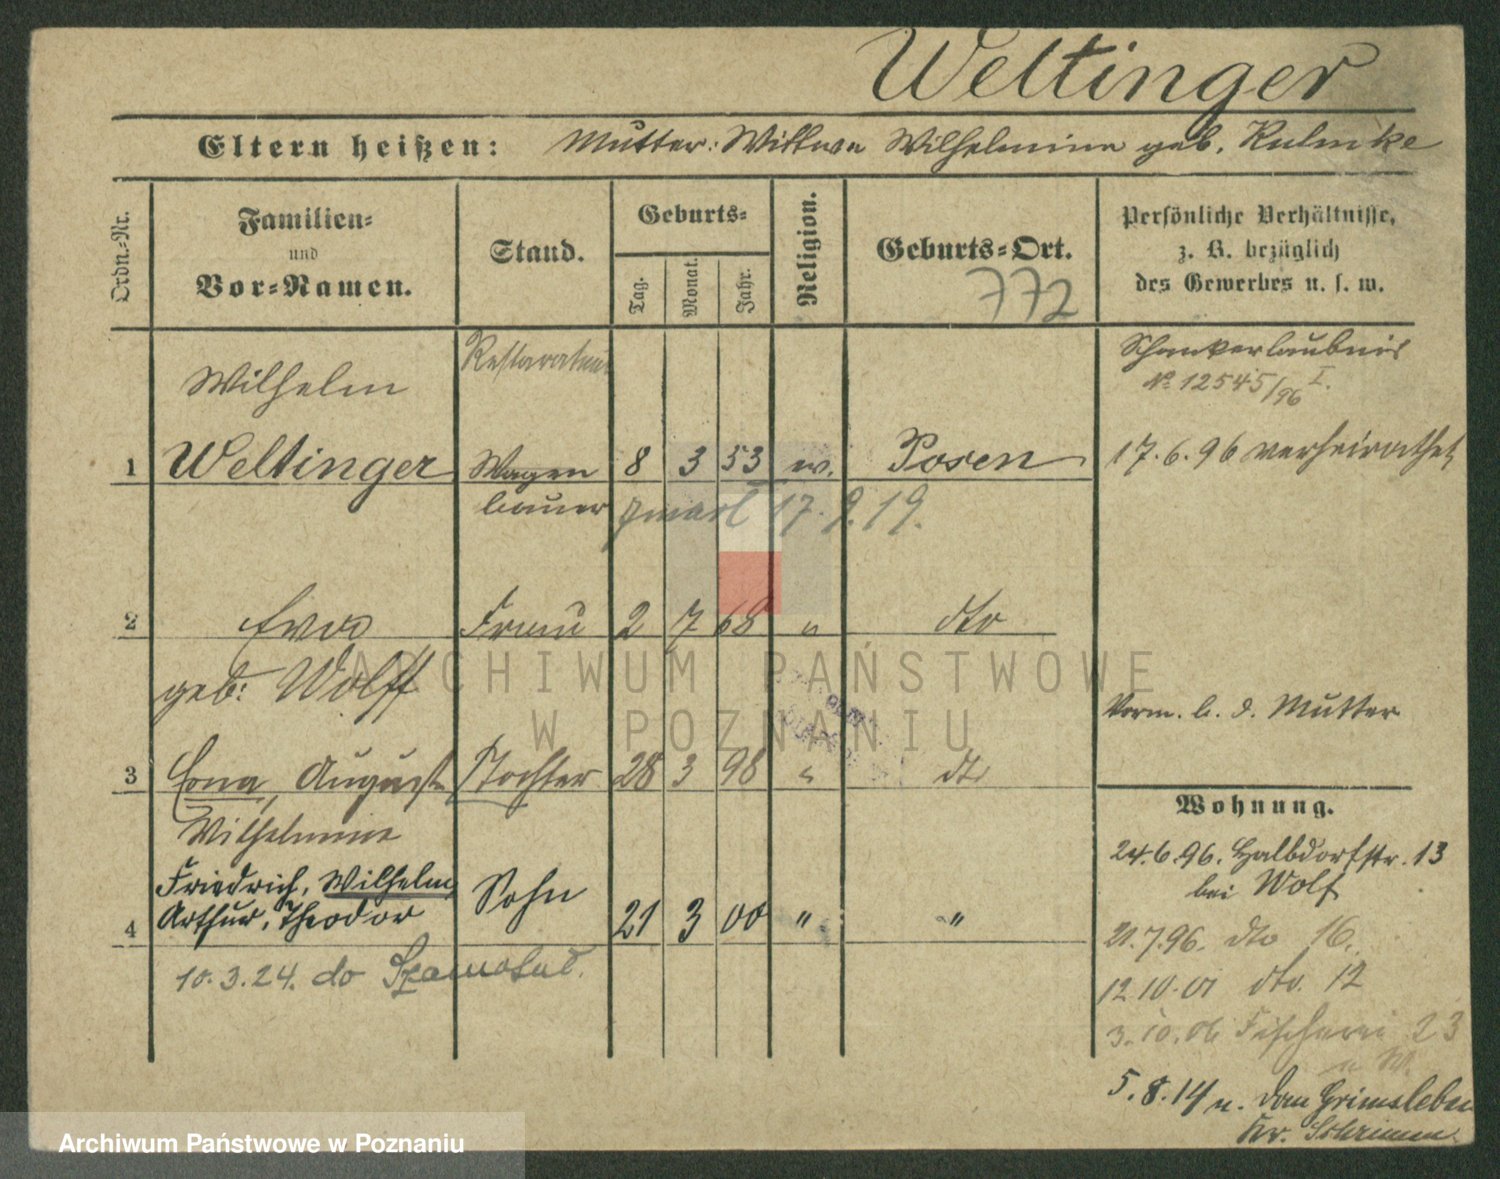 Weltinger
Eltern heißen: Mutter: Wittwe Wilhelmine geb. Kulmke
Ordn.-Nr.
Familien-
und
Vor-Namen.
Stand.
Geburts-
Tag.
Monat.
Jahr.
Religion.
Geburts-Ort.
772
Persönliche Verhältnisse,
z. B. bezüglich
des Gewerbes u. s. w.
Schankerlaubnis
No 12545/96 I.
Wilhelm
1 Weltinger Wagen 8 3 53 ev. Posen 17.6.96 verheirathet
bauer zmarł 17.9.19.
2 Eva Frau 2 7 68 " dto
geb: Wolff
Vorm. b. d. Mutter
3 Erna, August Tochter 28 3 98 " dto
Wilhelmine
Wohnung.
24.6.96. Halbdorfstr. 13
bei Wolf
Friedrich, Wilhelm,
4 Arthur, Theodor Sohn 21 3 00 " "
21.7.96. dto 16.
10.3.24. do Szamotuł.
12.10.01 dto. 12
3.10.06 Fischerei 23
n. W.
5.8.14 n. Dom Grimsleben
Kr. Schrimm
ARCHIWUM PAŃSTWOWE
W POZNANIU
Archiwum Państwowe w Poznaniu